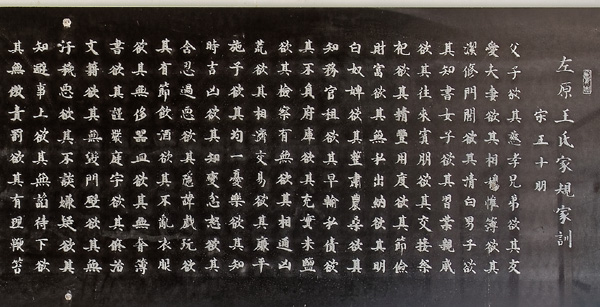 左原王氏家規家訓
宋 王十朋
父子欲其慈孝兄弟欲其友
愛夫妻欲其相帷簿欲其
潔修門閭欲其清白男子欲
其知書女子欲其習業親戚
欲其往來賓朋欲其交接祭
祀欲其精豐用度欲其節儉
財富欲其無私出納欲其明
白奴婢欲其整肅農桑欲其
知務官租欲其早輸私債欲
其不負府庫欲其充實米鹽
欲其檢察有無欲其相通凶
荒欲其相濟交易欲其廉平
施予欲其均一憂樂欲其知
時吉凶欲其知變忿怒欲其
含忍過惡欲其隱諱戲玩欲
其有節飲酒欲其不亂衣服
欲其無侈器皿欲其無奢簿
書欲其謹嚴庭宇欲其修治
文籍欲其無毀門壁欲其無
汙惡欲其不談嫌疑欲其
知避事上欲其無諂待下欲
其無傲責罰欲其有理鞭笞